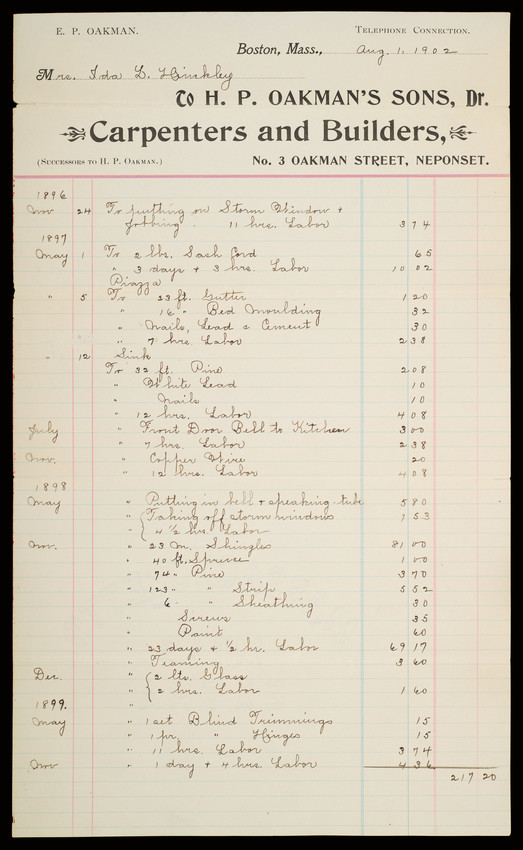 E. P. OAKMAN. TELEPHONE CONNECTION.
Boston, Mass., Aug. 1, 1902
Mrs. Ida L. Hinkley
To H. P. OAKMAN'S SONS, Dr.
Carpenters and Builders,
(SUCCESSORS TO H. P. OAKMAN.) No. 3 OAKMAN STREET, NEPONSET.
1896
Nov 24 To putting on Storm Window +
Jobbing 11 hrs. Labor 3 74
1897
May 1 To 2 lbs. Sash Cord 65
" 3 days + 3 hrs. Labor 10 02
Piazza
" 5 To 23 ft. Gutter 1 20
" 16 " Bed Moulding 32
" Nails, Lead & Cement 30
" 7 hrs. Labor 2 38
" 12 Sink
To 32 ft. Pine 2 08
" White Lead 10
" Nails 10
" 12 hrs. Labor 4 08
July " Front Door Bell to Kitchen 3 00
" 7 hrs. Labor 2 38
Nov. " Copper Wire 20
" 12 hrs. Labor 4 08
1898
May " Putting in bell + speaking tube 5 80
" Taking off storm windows 1 53
" 4 1/2 hrs. Labor
Nov. " 23 M. Shingles 81 00
" 40 ft. Spruce 1 00
" 74 " Pine 3 70
" 123 " " Strip 5 52
" 6 " " Sheathing 30
" Screws 35
" Paint 60
" 23 days + 1/2 hr. Labor 69 17
" Teaming 3 60
Dec. " 2 lts. Glass
" 2 hrs. Labor 1 60
1899. "
May " 1 set Blind Trimmings 15
" 1 pr. " Hinges 15
" 11 hrs. Labor 3 74
Nov " 1 day + 4 hrs. Labor 4 36
217 20